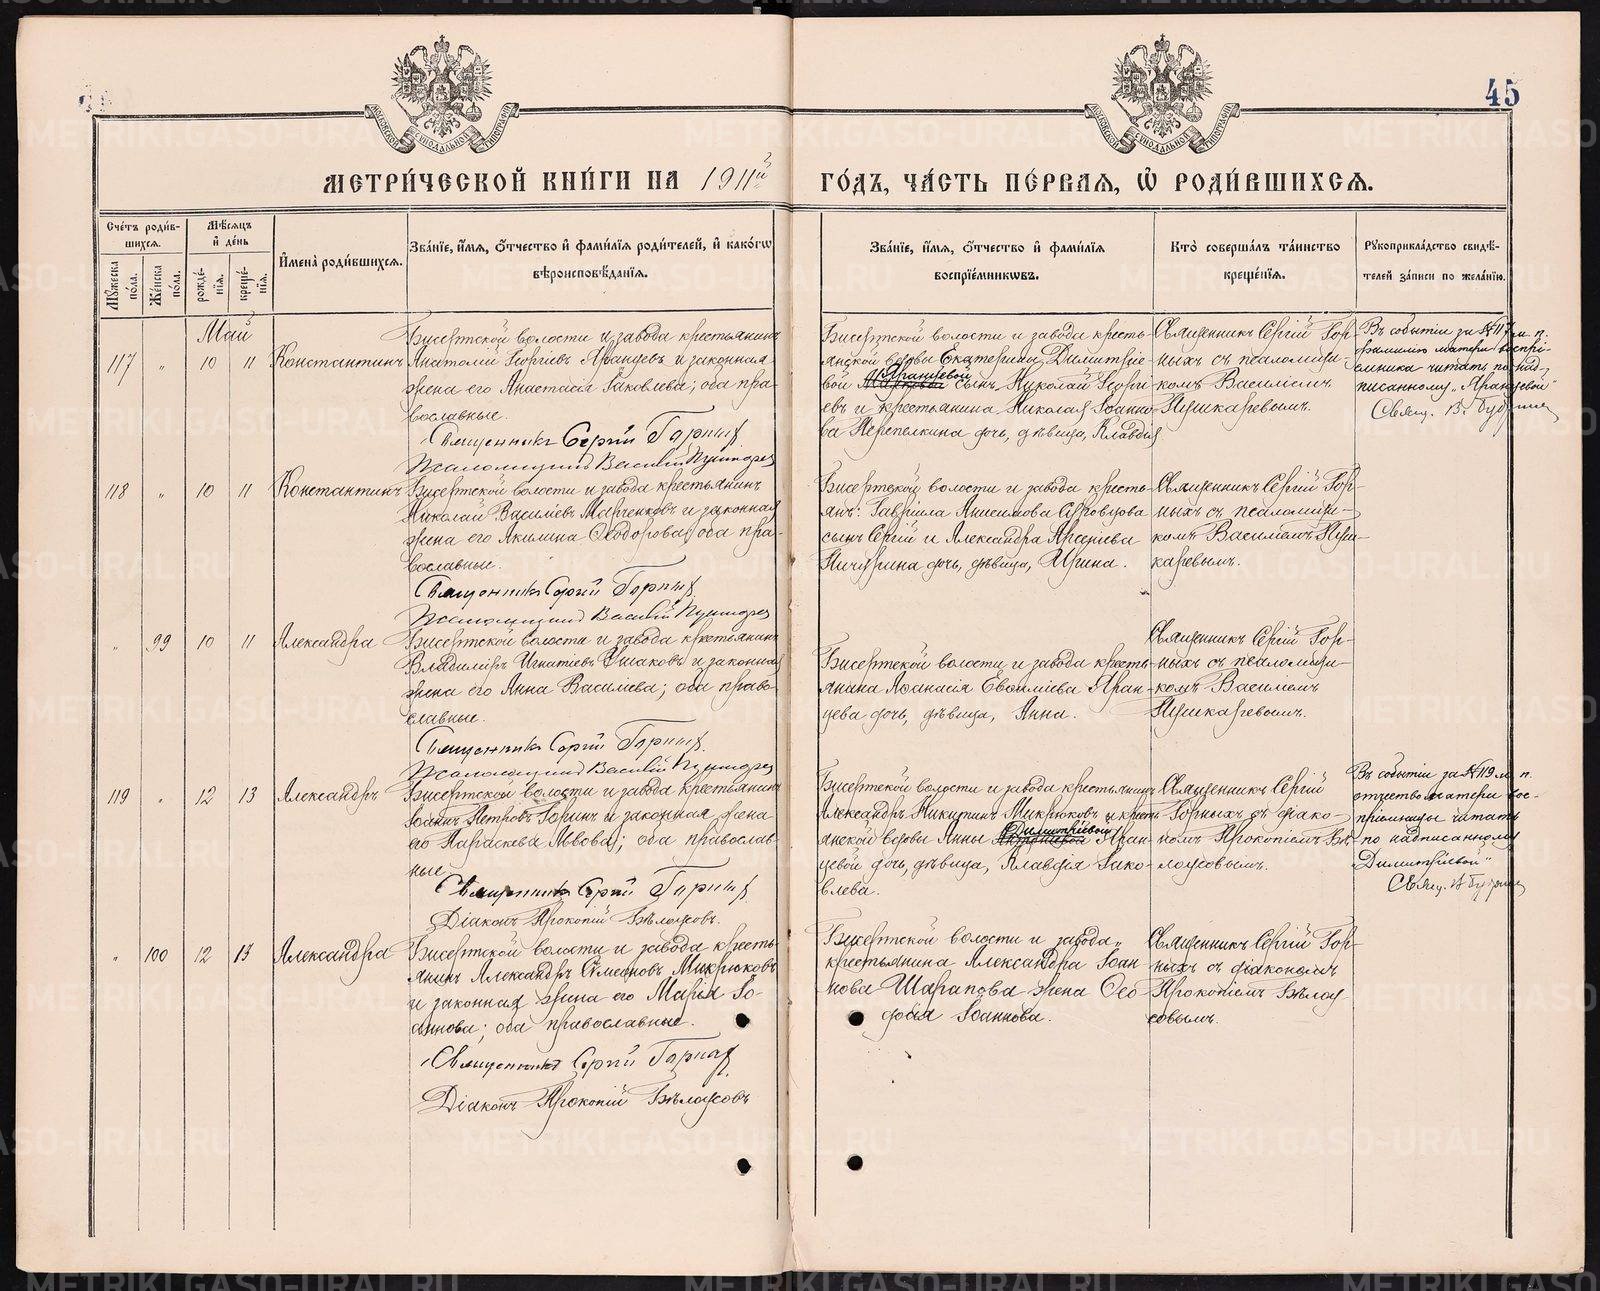 45
МЕТРИ́ЧЕСКОЙ КНИ́ГИ НА 1911й
ГО́ДЪ, ЧА́СТЬ ПЕ́РВАѦ, Ѡ҆ РОДИ́ВШИХСѦ.
Сче́тъ роди́в-
шихсѧ.
Му́жеска по́ла.
Же́нска по́ла.
Мѣ́сѧцъ
и҆ де́нь
рожде́-
нїѧ.
креще́-
нїѧ.
И҆мена̀ роди́вшихсѧ.
Зва́нїе, и҆́мѧ, ѻ҆́тчество и҆ фами́лїѧ роди́телей, и҆ како́гѡ
вѣроисповѣ́данїѧ.
Зва́нїе, и҆́мѧ, ѻ҆́тчество и҆ фами́лїѧ
воспрїе́мникѡвъ.
Кто̀ соверша́лъ та́инство
креще́нїѧ.
Рꙋкоприкла́дство свидѣ́-
телей за́писи по жела́нїю.
Май
117 " 10 11 Константинъ
Бисертской волости и завода крестьянинъ
Анатолій Георгіевъ Яранцевъ и законная
жена его Анастасія Іаковлева; оба пра-
вославные.
Священникъ Сергій Горныхъ
Псаломщикъ Василій Пушкаревъ
Бисертской волости и завода кресть-
янской вдовы Екатерины Димитріе-
вой Яранцевой сынъ Николай Георгі-
евъ и крестьянина Николая Іоанно-
ва Перепелкина дочь, дѣвица, Клавдія
Священникъ Сергій Гор-
ныхъ съ псаломщи-
комъ Василіемъ
Пушкаревымъ.
Въ событіи за № 117 м. п.
фамилію матери воспрі-
емника читать по над-
писанному „Яранцевой"
Свящ. В.
118 " 10 11 Константинъ
Бисертской волости и завода крестьянинъ
Николай Василіевъ Марченковъ и законная
жена его Акилина Ѳеодорова; оба пра-
вославные.
Священникъ Сергій Горныхъ
Псаломщикъ Василій Пушкаревъ
Бисертской волости и завода кресть-
янъ: Гавріила Анисимова
сынъ Сергій и Александра Арсеніева
Пичугина дочь, дѣвица, Ирина.
Священникъ Сергій Гор-
ныхъ съ псаломщи-
комъ Василіемъ Пуш-
каревымъ.
" 99 10 11 Александра
Бисертской волости и завода крестьянинъ
Владиміръ Игнатіевъ Ушаковъ и законная
жена его Анна Василіева; оба право-
славные.
Священникъ Сергій Горныхъ
Псаломщикъ Василій Пушкаревъ
Бисертской волости и завода кресть-
янина Аѳанасія Евѳиміева Яран-
цева дочь, дѣвица, Анна.
Священникъ Сергій Гор-
ныхъ съ псаломщи-
комъ Василіемъ
Пушкаревымъ.
119 " 12 13 Александръ
Бисертской волости и завода крестьянинъ
Іоаннъ Петровъ Горинъ и законная жена
его Параскева Львова; оба православ-
ные.
Священникъ Сергій Горныхъ
Діаконъ Прокопій Бѣлоусовъ.
Бисертской волости и завода крестьянинъ
Александръ Никитинъ Микрюковъ и кресть-
янской вдовы Анны Димитріевой Яран-
цевой дочь, дѣвица, Клавдія Іако-
влева.
Священникъ Сергій
Горныхъ съ діако-
номъ Прокопіемъ Бѣ-
лоусовымъ.
Въ событіи за № 119 м. п.
отчество матери вос-
пріемницы читать
по надписанному
„Димитріевой"
Свящ. В.
" 100 12 13 Александра
Бисертской волости и завода кресть-
янинъ Александръ Симеоновъ Микрюковъ
и законная жена его Марія Іо-
аннова; оба православные.
Священникъ Сергій Горныхъ
Діаконъ Прокопій Бѣлоусовъ
Бисертской волости и завода
крестьянина Александра Іоан-
нова Шарапова жена Ѳео-
досія Іоаннова.
Священникъ Сергій Гор-
ныхъ съ діакономъ
Прокопіемъ Бѣлоу-
совымъ.
METRIKI.GASO-URAL.RU